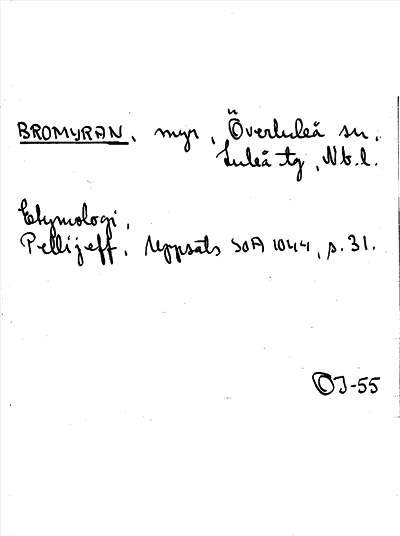 BROMYRAN, myr, Överluleå sn,
Luleå tg, Nb.l.
Etymologi,
Pellijeff, Uppsats SOA 1044, s. 31.
OJ-55